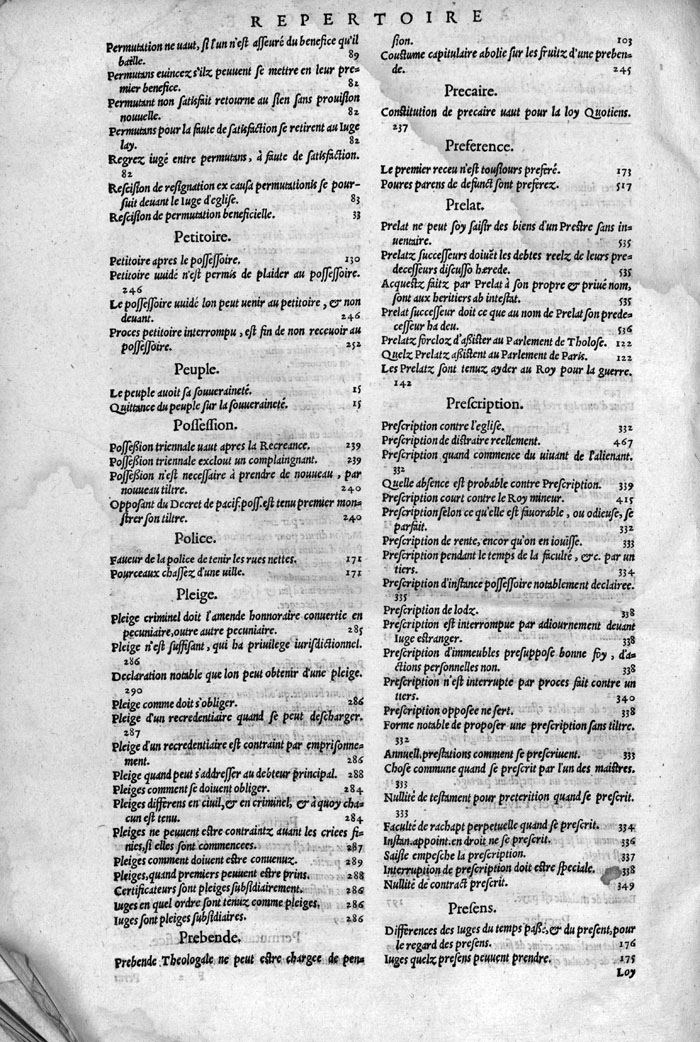 REPERTOIRE
Permutation ne uaut, si l'un n'est asseuré du benefice qu'il
baille. 89
Permutans euincez s'ilz peuuent se mettre en leur pre-
mier benefice. 82
Permutant non satisfait retourne au sien sans prouision
nouuelle. 82
Permutans pour la faute de satisfaction se retirent au Iuge
lay. 82
Regrez iugé entre permutans, à faute de satisfaction.
82
Rescision de resignation ex causa permutationis se pour-
suit deuant le Iuge d'eglise. 83
Rescision de permutation beneficielle. 33
Petitoire.
Petitoire apres le possessoire. 130
Petitoire uuidé n'est permis de plaider au possessoire.
246
Le possessoire uuidé lon peut uenir au petitoire, & non
deuant. 246
Proces petitoire interrompu, est fin de non receuoir au
possessoire. 252
Peuple.
Le peuple auoit sa souueraineté. 15
Quittance du peuple sur la souueraineté. 15
Possession.
Possession triennale uaut apres la Recreance. 239
Possession triennale exclout un complaingnant. 239
Possession n'est necessaire à prendre de nouueau, par
nouueau tiltre. 240
Opposant du Decret de pacif. poss. est tenu premier mon-
strer son tiltre. 240
Police.
Faueur de la police de tenir les rues nettes. 171
Pourceaux chassez d'une uille. 171
Pleige.
Pleige criminel doit l'amende honnoraire conuertie en
pecuniaire, outre autre pecuniaire. 285
Pleige n'est suffisant, qui ha priuilege iurisdictionnel.
286
Declaration notable que lon peut obtenir d'une pleige.
290
Pleige comme doit s'obliger. 286
Pleige d'un recredentiaire quand se peut descharger.
287
Pleige d'un recredentiaire est contraint par emprisonne-
ment. 286
Pleige quand peut s'addresser au debteur principal. 288
Pleiges comment se doiuent obliger. 284
Pleiges differens en ciuil, & en criminel, & à quoy cha-
cun est tenu. 284
Pleiges ne peuuent estre contraintz auant les criees fi-
nies, si elles sont commencees. 287
Pleiges comment doiuent estre conuenuz. 289
Pleiges, quand premiers peuuent estre prins. 288
Certificateurs sont pleiges subsidiairement. 286
Iuges en quel ordre sont tenuz comme pleiges. 286
Iuges sont pleiges subsidiaires. 286
Prebende.
Prebende Theologale ne peut estre chargee de pen-
sion. 103
Coustume capitulaire abolie sur les fruitz d'une preben-
de. 245
Precaire.
Constitution de precaire uaut pour la loy Quotiens.
237
Preference.
Le premier receu n'est tousiours preferé. 173
Poures parens de defunct sont preferez. 517
Prelat.
Prelat ne peut soy saisir des biens d'un Prestre sans in-
uentaire. 535
Prelatz successeurs doiuẽt les debtes reelz de leurs pre-
decesseurs discusso hærede. 535
Acquestz faitz par Prelat à son propre & priué nom,
sont aux heritiers ab intestat. 535
Prelat successeur doit ce que au nom de Prelat son prede-
cesseur ha deu. 536
Prelatz forcloz d'assister au Parlement de Tholose. 122
Quelz Prelatz assistent au Parlement de Paris. 122
Les Prelatz sont tenuz ayder au Roy pour la guerre.
142
Prescription.
Prescription contre l'eglise. 332
Prescription de distraire reellement. 467
Prescription quand commence du uiuant de l'alienant.
332
Quelle absence est probable contre Prescription. 339
Prescription court contre le Roy mineur. 415
Prescription selon ce qu'elle est fauorable, ou odieuse, se
parfait. 332
Prescription de rente, encor qu'on en iouisse. 333
Prescription pendant le temps de la faculté, &c. par un
tiers. 334
Prescription d'instance possessoire notablement declairee.
335
Prescription de lodz. 338
Prescription est interrompue par adiournement deuant
Iuge estranger. 338
Prescription d'immeubles presuppose bonne foy, d'a-
ctions personnelles non. 338
Prescription n'est interrupte par proces fait contre un
tiers. 340
Prescription opposee ne sert. 338
Forme notable de proposer une prescription sans tiltre.
332
Annuell. prestations comment se prescriuent. 333
Chose commune quand se prescrit par l'un des maistres.
333
Nullité de testament pour preterition quand se prescrit.
333
Faculté de rachapt perpetuelle quand se prescrit. 334
Instan. appoint. en droit ne se prescrit. 336
Saisie empesche la prescription. 337
Interruption de prescription doit estre speciale. 338
Nullité de contract prescrit. 349
Presens.
Differences des Iuges du temps passé, & du present, pour
le regard des presens. 176
Iuges quelz presens peuuent prendre. 175
Loy